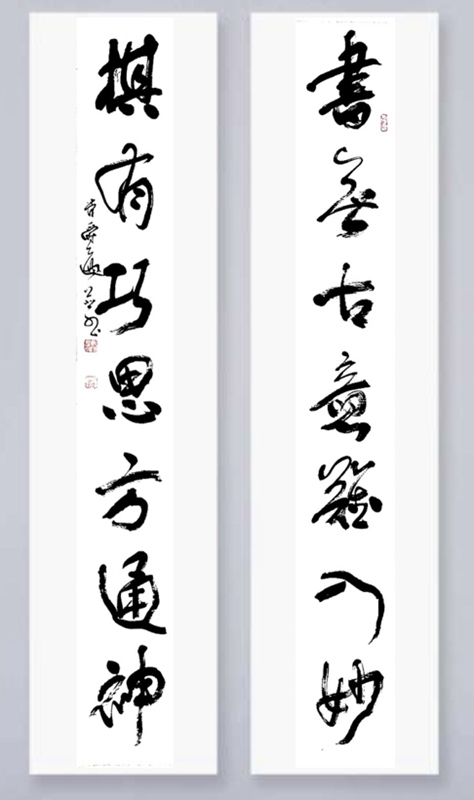 書無古意難入妙
棋有巧思方通神